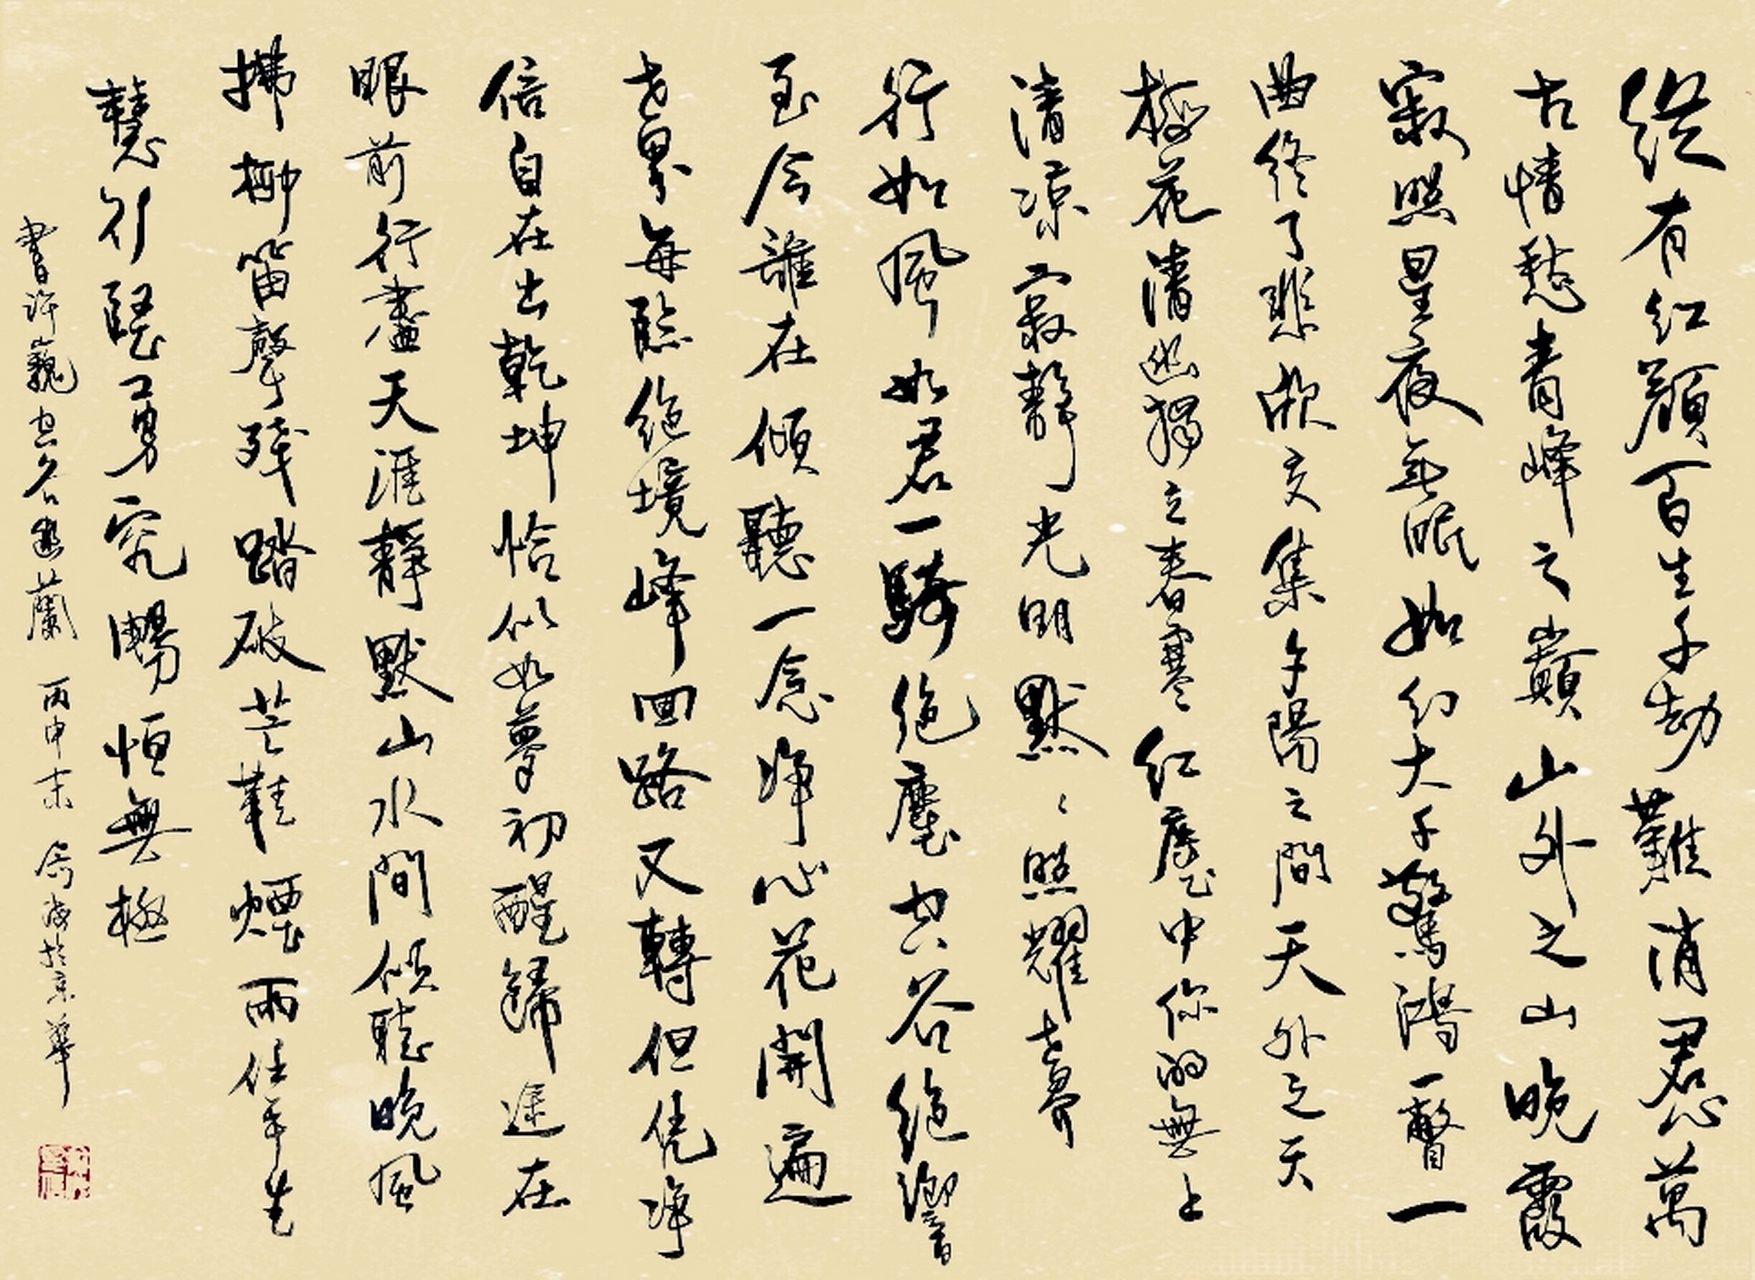 縱有红顏百生千劫難消君心萬
古情愁青峰之巔山外之山晚霞
寂照星夜无眠如幻大千驚鴻一瞥一
曲終了悲欣交集夕陽之間天外之天
梅花清幽獨立春寒红塵中你的無上
清凉寂靜光明默默照耀世界
行如風如君一騎绝塵空谷绝響
至今誰在傾聽一念净心花開遍
世界每臨绝境峰回路又轉但凭净
信自在出乾坤恰似如夢初醒歸途在
眼前行盡天涯靜默山水間倾聽晚風
拂柳笛聲殘踏破芒鞋煙雨任平生
慧行堅勇究暢恒無極
書許巍空谷幽蘭 丙申末 海於京華